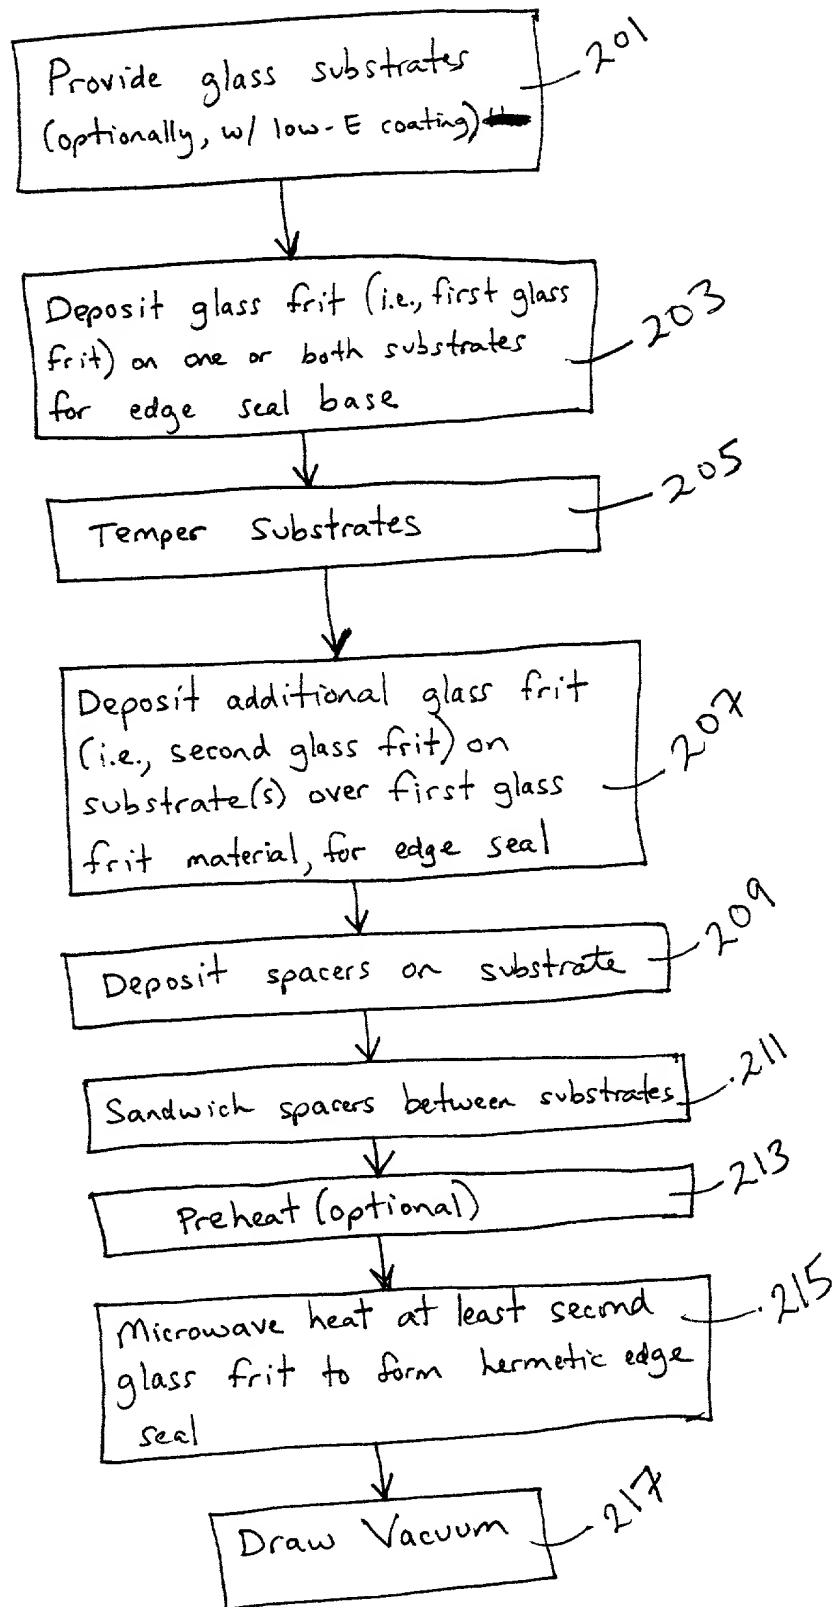 Provide glass substrates
(optionally, w/ low-E coating)
201
Deposit glass frit (i.e., first glass
frit) on one or both substrates
for edge seal base
203
Temper Substrates
205
Deposit additional glass frit
(i.e., second glass frit) on
substrate(s) over first glass
frit material, for edge seal
207
Deposit spacers on substrate
209
Sandwich spacers between substrates
211
Preheat (optional)
213
Microwave heat at least second
glass frit to form hermetic edge
seal
215
Draw Vacuum
217